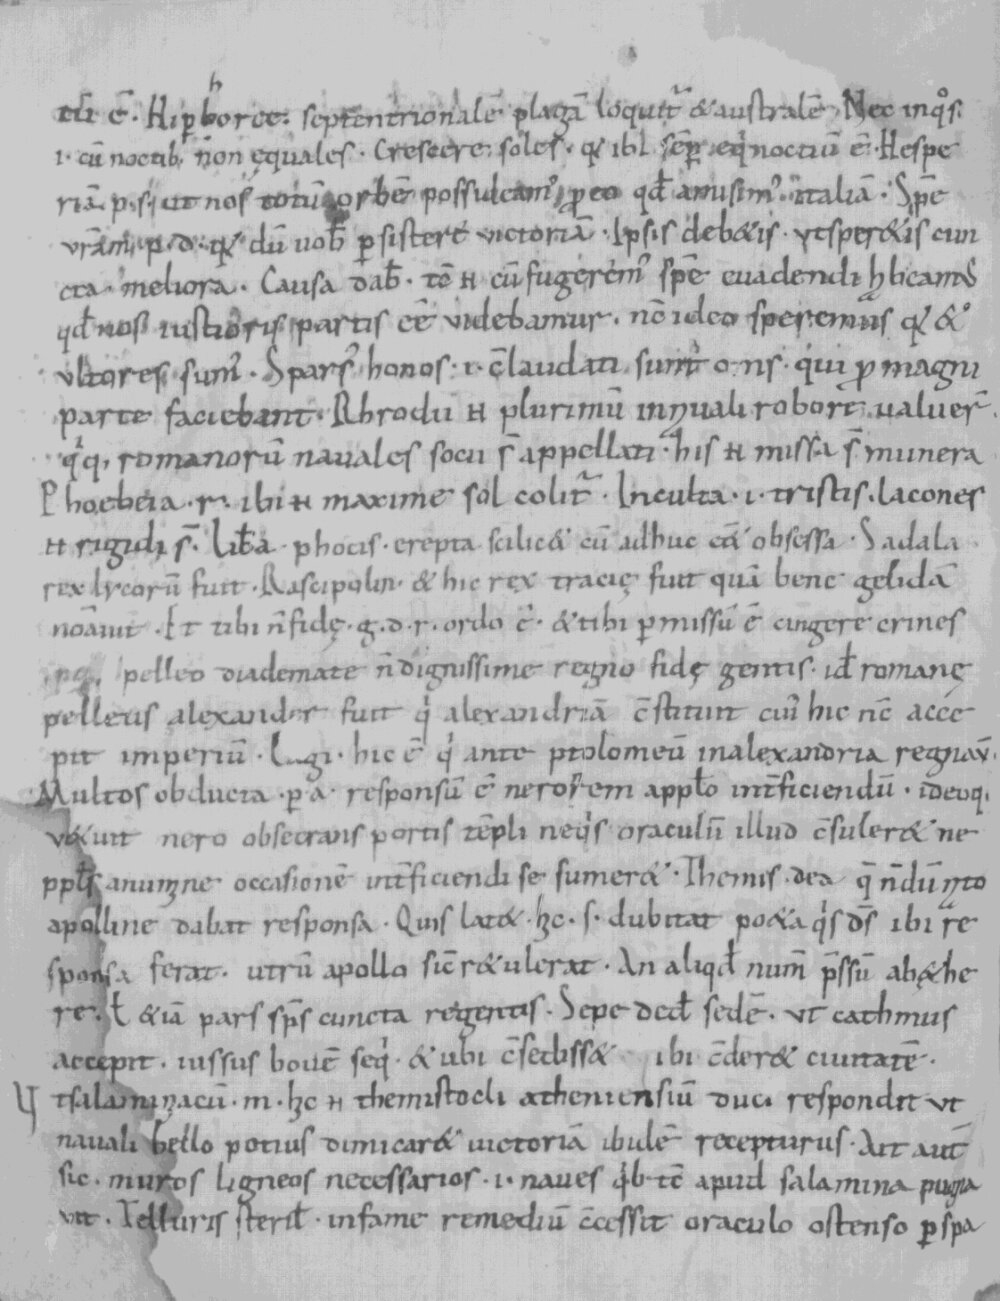 tū ē. Hiperboree. septentrionalē plagā loquit̄ & australē Nec inq̊s.
i. cū noctib; non ęquales. Crescere soles. q̨ ibi sēp eq̇noctiū ē. Hespe
riā. p. s. ut nos totū orbē possideam᾽ ꝓ eo qđ amisim᾽ italiā. Spē
vr̄am. p. d. q̨ dū uob̄ ꝑsistere victoriā. Ipsis deb&is. vt sper&is cun
cta meliora. Causa dab̄. tē ꞟ cū fugerem᾽ spē euadendi habeam᾽
qđ nos iustioris partis eē videbamur. nc̄ ideo speremus q̨ &
ultores sum᾽. Spars᾽ honos. i. c̄laudati sunt o. ns. qui ꝓ magni
parte faciebant. Rhrodii ꞟ plurimū in nauali robore ualuer̄.
q̇q; romanorū nauales socii s̄ appellati. his ꞟ missa s̄ munera
Phoebeia. r. ibi ꞟ maxime sol colit̄. Inculta. i. tristis. lacones
ꞟ rigidi s̄. Lib̄a phocis. erepta scilic& cū adhuc eēt obsessa. Sadala
rex lycorū fuit. Rascipolin. & hic rex tracię fuit quā bene gelidā
noāuit. Et tibi n̄ fidę. g. d. r. ordo ē. & tibi ꝑmissū ē cingere crines
pelleo diademate n̄ dignissime regno fidę gentis. id romanę
pelleus alexander fuit q̇ alexandriā c̄stituit cui᾽ hic nc̄ acce
pit imperiū. Lagi. hic ē q̇ ante ptolomeū in alexandria regnav̄.
Multos obducta. p. a. responsū ē neronem appłlo int̄ficiendū. ideoq;
u&uit nero obsecrans portis tēpli neq̇s oraculū illud c̄suler& ne
ppłs animūne occasionē int̄ficiendi se sumer&. Themis. dea q̄ nōdū nato
apolline dabat responsa. Quis lat&. hc. s. dubitat po&a q̇s ds̄ ibi re
sponsa ferat. utrū apollo sic̄ r&ulerat. An aliqđ num̄ p̄ssū ab &he
re. ł &iā pars sps̄ cuncta regentis. Sepe dedł sedē. vt cathmus
accepit. iussus bouē seq̇. & ubi c̄sediss& ibi c̄der& ciuitatē.
Vt salaminacū. m. hc ꞟ themistocli atheniensiū duci respondit vt
nauali bello potius dimicar& uictoriā ibidē recepturus. Ait aut̄
sic. muros ligneos necessarios. i. naues q̇b; tc̄ apud salamina pugna
uit. Telluris steril̄. infame remediū c̄cessit oraculo ostenso ꝑ spa